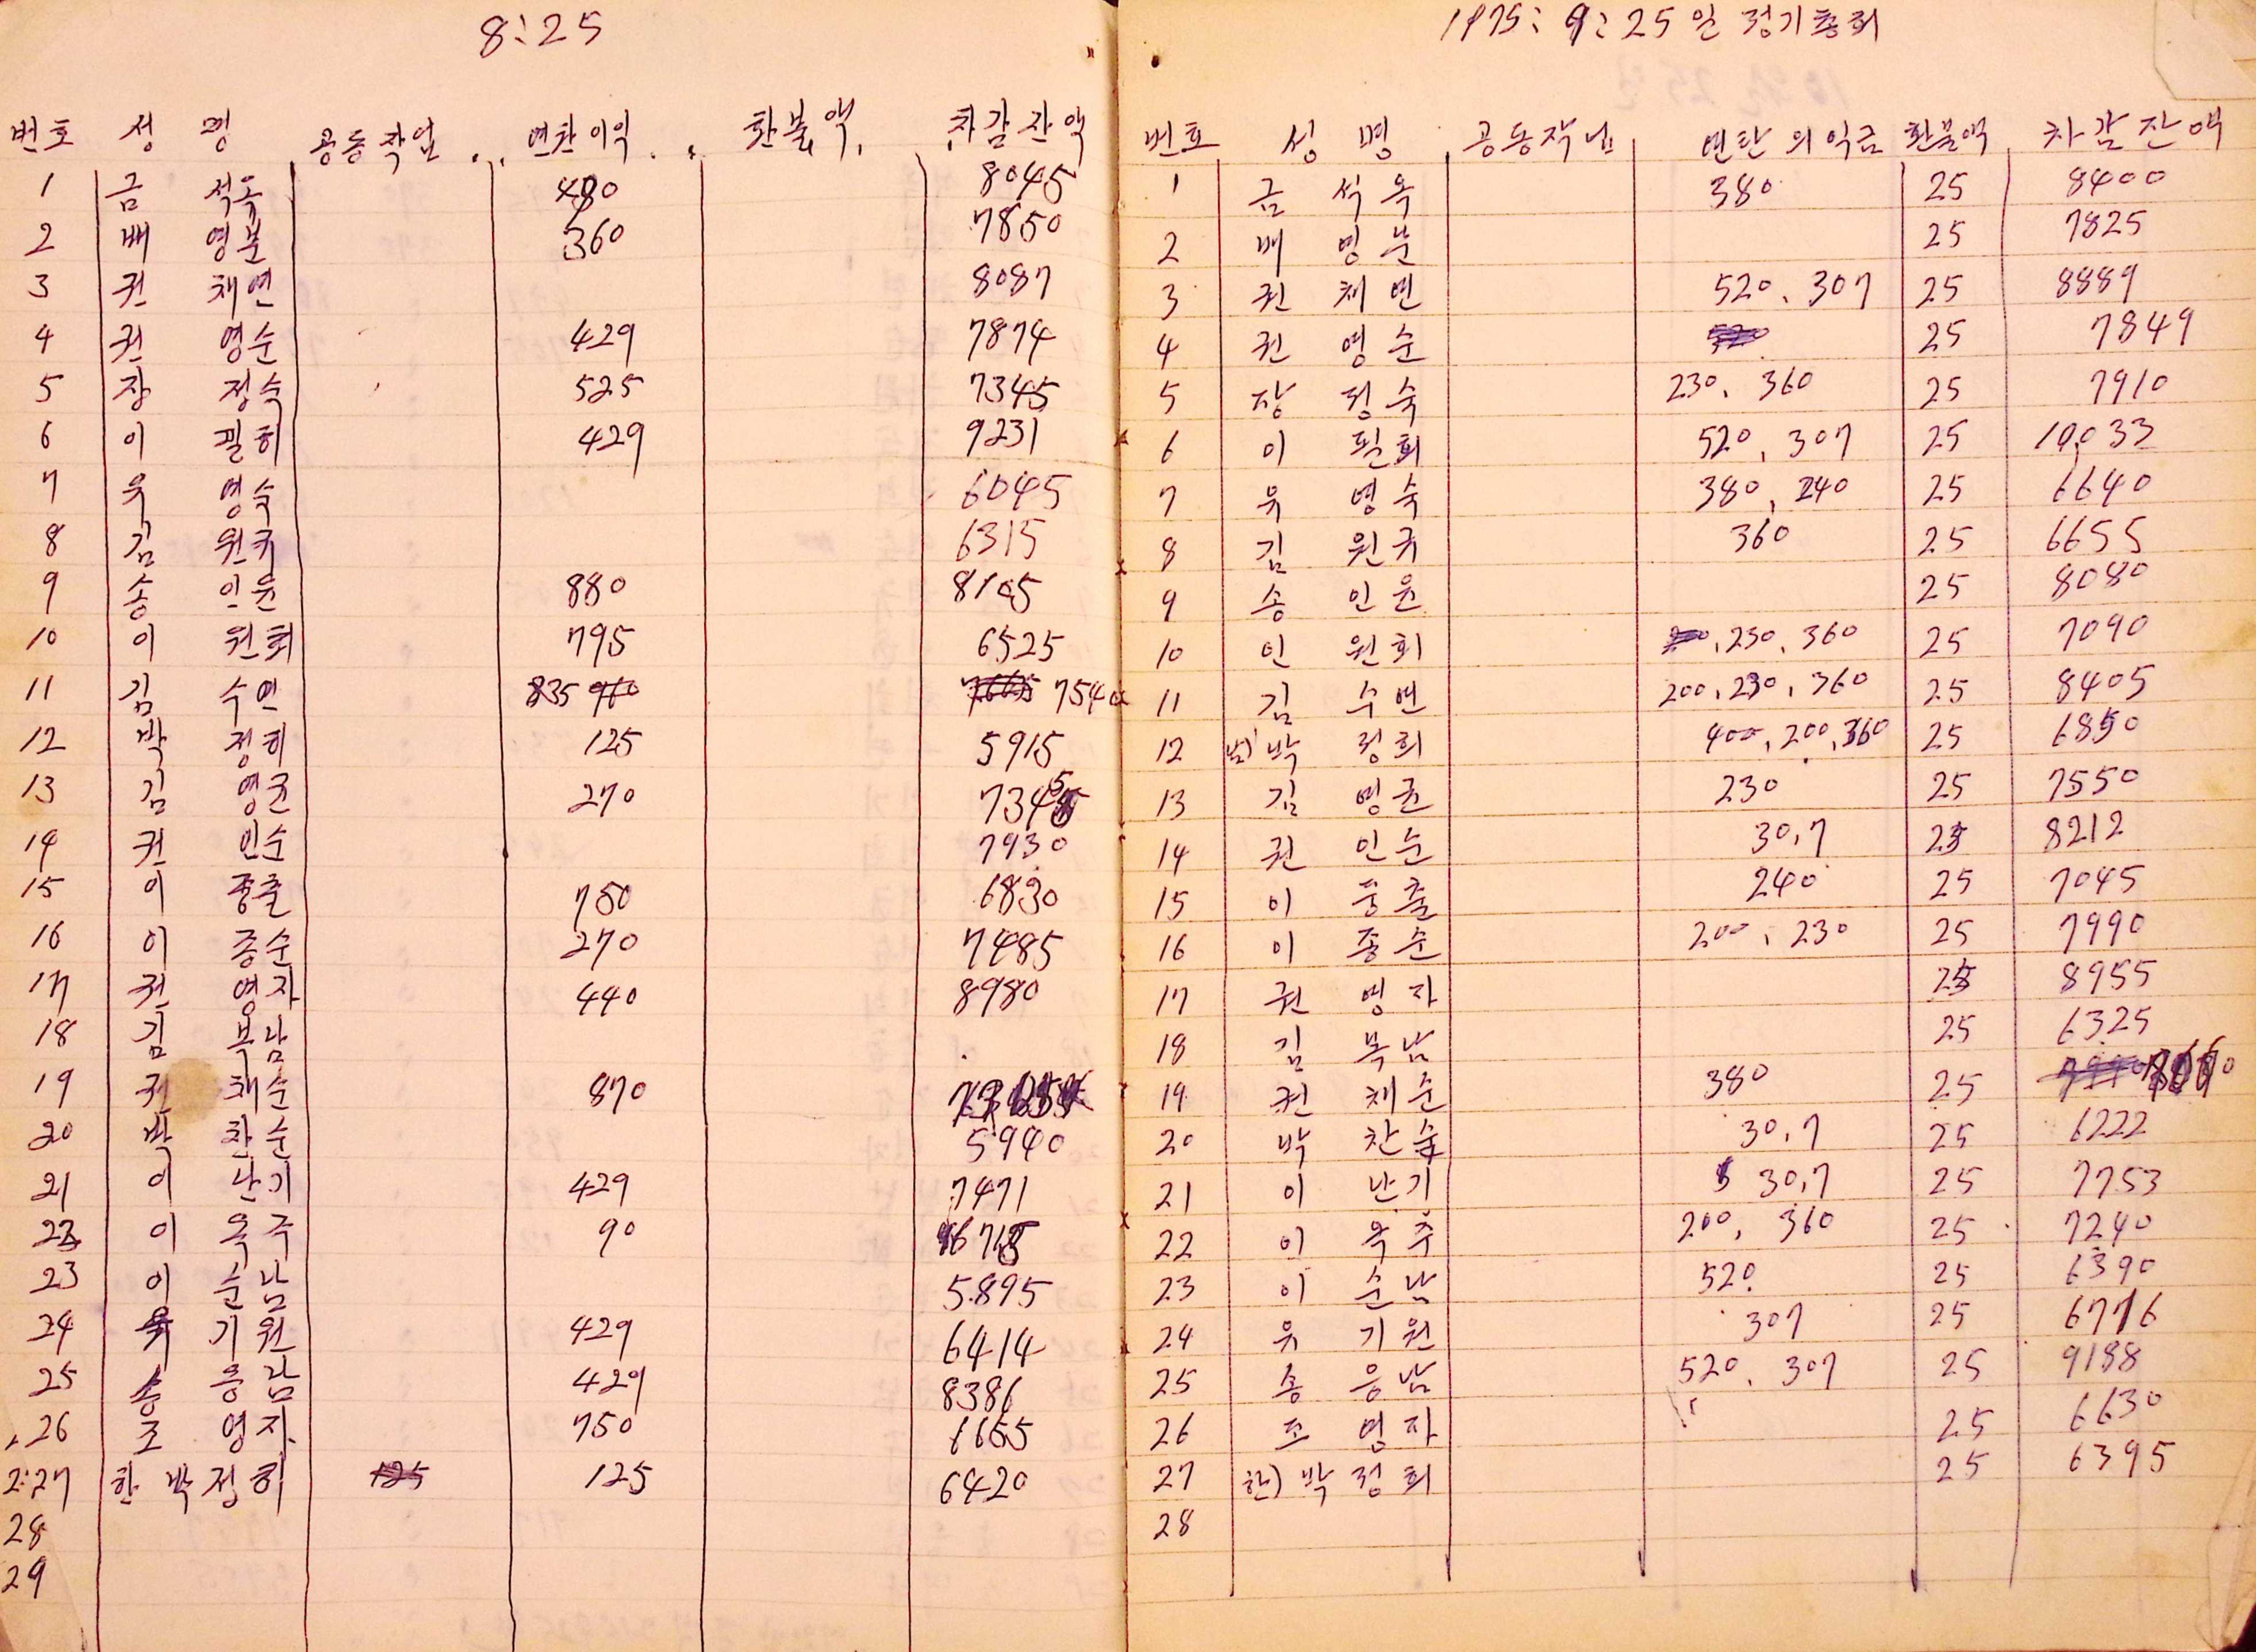 8:25
번호 성 명 공동작업 연탄이익 환불액 차감잔액
1 금 석옥 480 8045
2 배 영분 360 7850
3 권 채연 8087
4 권 영순 429 7874
5 장 정숙 525 7345
6 이 필희 429 9231
7 유 영숙 6045
8 김 원규 6315
9 송 인윤 880 8105
10 이 원희 795 6525
11 김 수연 835 960 7665 7540
12 박 정희 125 5915
13 김 영균 270 7345
14 권 인순 7930
15 이 종출 750 6830
16 이 종순 270 7485
17 권 영자 440 8980
18 김 복남
19 권 채순 870
20 박 찬순 5940
21 이 난기 429 7471
22 이 옥주 90
23 이 순남 5895
24 유 기원 429 6414
25 송 응남 429 8386
26 조 영자 750 6655
27 한 박정희 125 125 6420
28
29
1975: 9: 25일 정기총회
번호 성 명 공동작업 연탄 의익금 환불액 차감잔액
1 금 석옥 380 25 8400
2 배 영분 25 7825
3 권 채연 520, 307 25 8889
4 권 영순 520 25 7849
5 장 정숙 230, 360 25 7910
6 이 필희 520, 307 25 10,033
7 유 영숙 380, 240 25 6640
8 김 원규 360 25 6655
9 송 인윤 25 8080
10 인 원희 230, 360 25 7090
11 김 수연 200, 230, 360 25 8405
12 남) 박 정희 400, 200, 360 25 6850
13 김 영균 230 25 7550
14 권 인순 30,7 25 8212
15 이 종출 240 25 7045
16 이 종순 200, 230 25 7990
17 권 영자 25 8955
18 김 복남 25 6325
19 권 채순 380 25
20 박 찬순 30,7 25 6222
21 이 난기 30,7 25 7753
22 이 옥주 200, 360 25 7240
23 이 순남 520 25 6390
24 유 기원 307 25 6776
25 송 응남 520, 307 25 9188
26 조 영자 25 6630
27 한) 박정희 25 6395
28